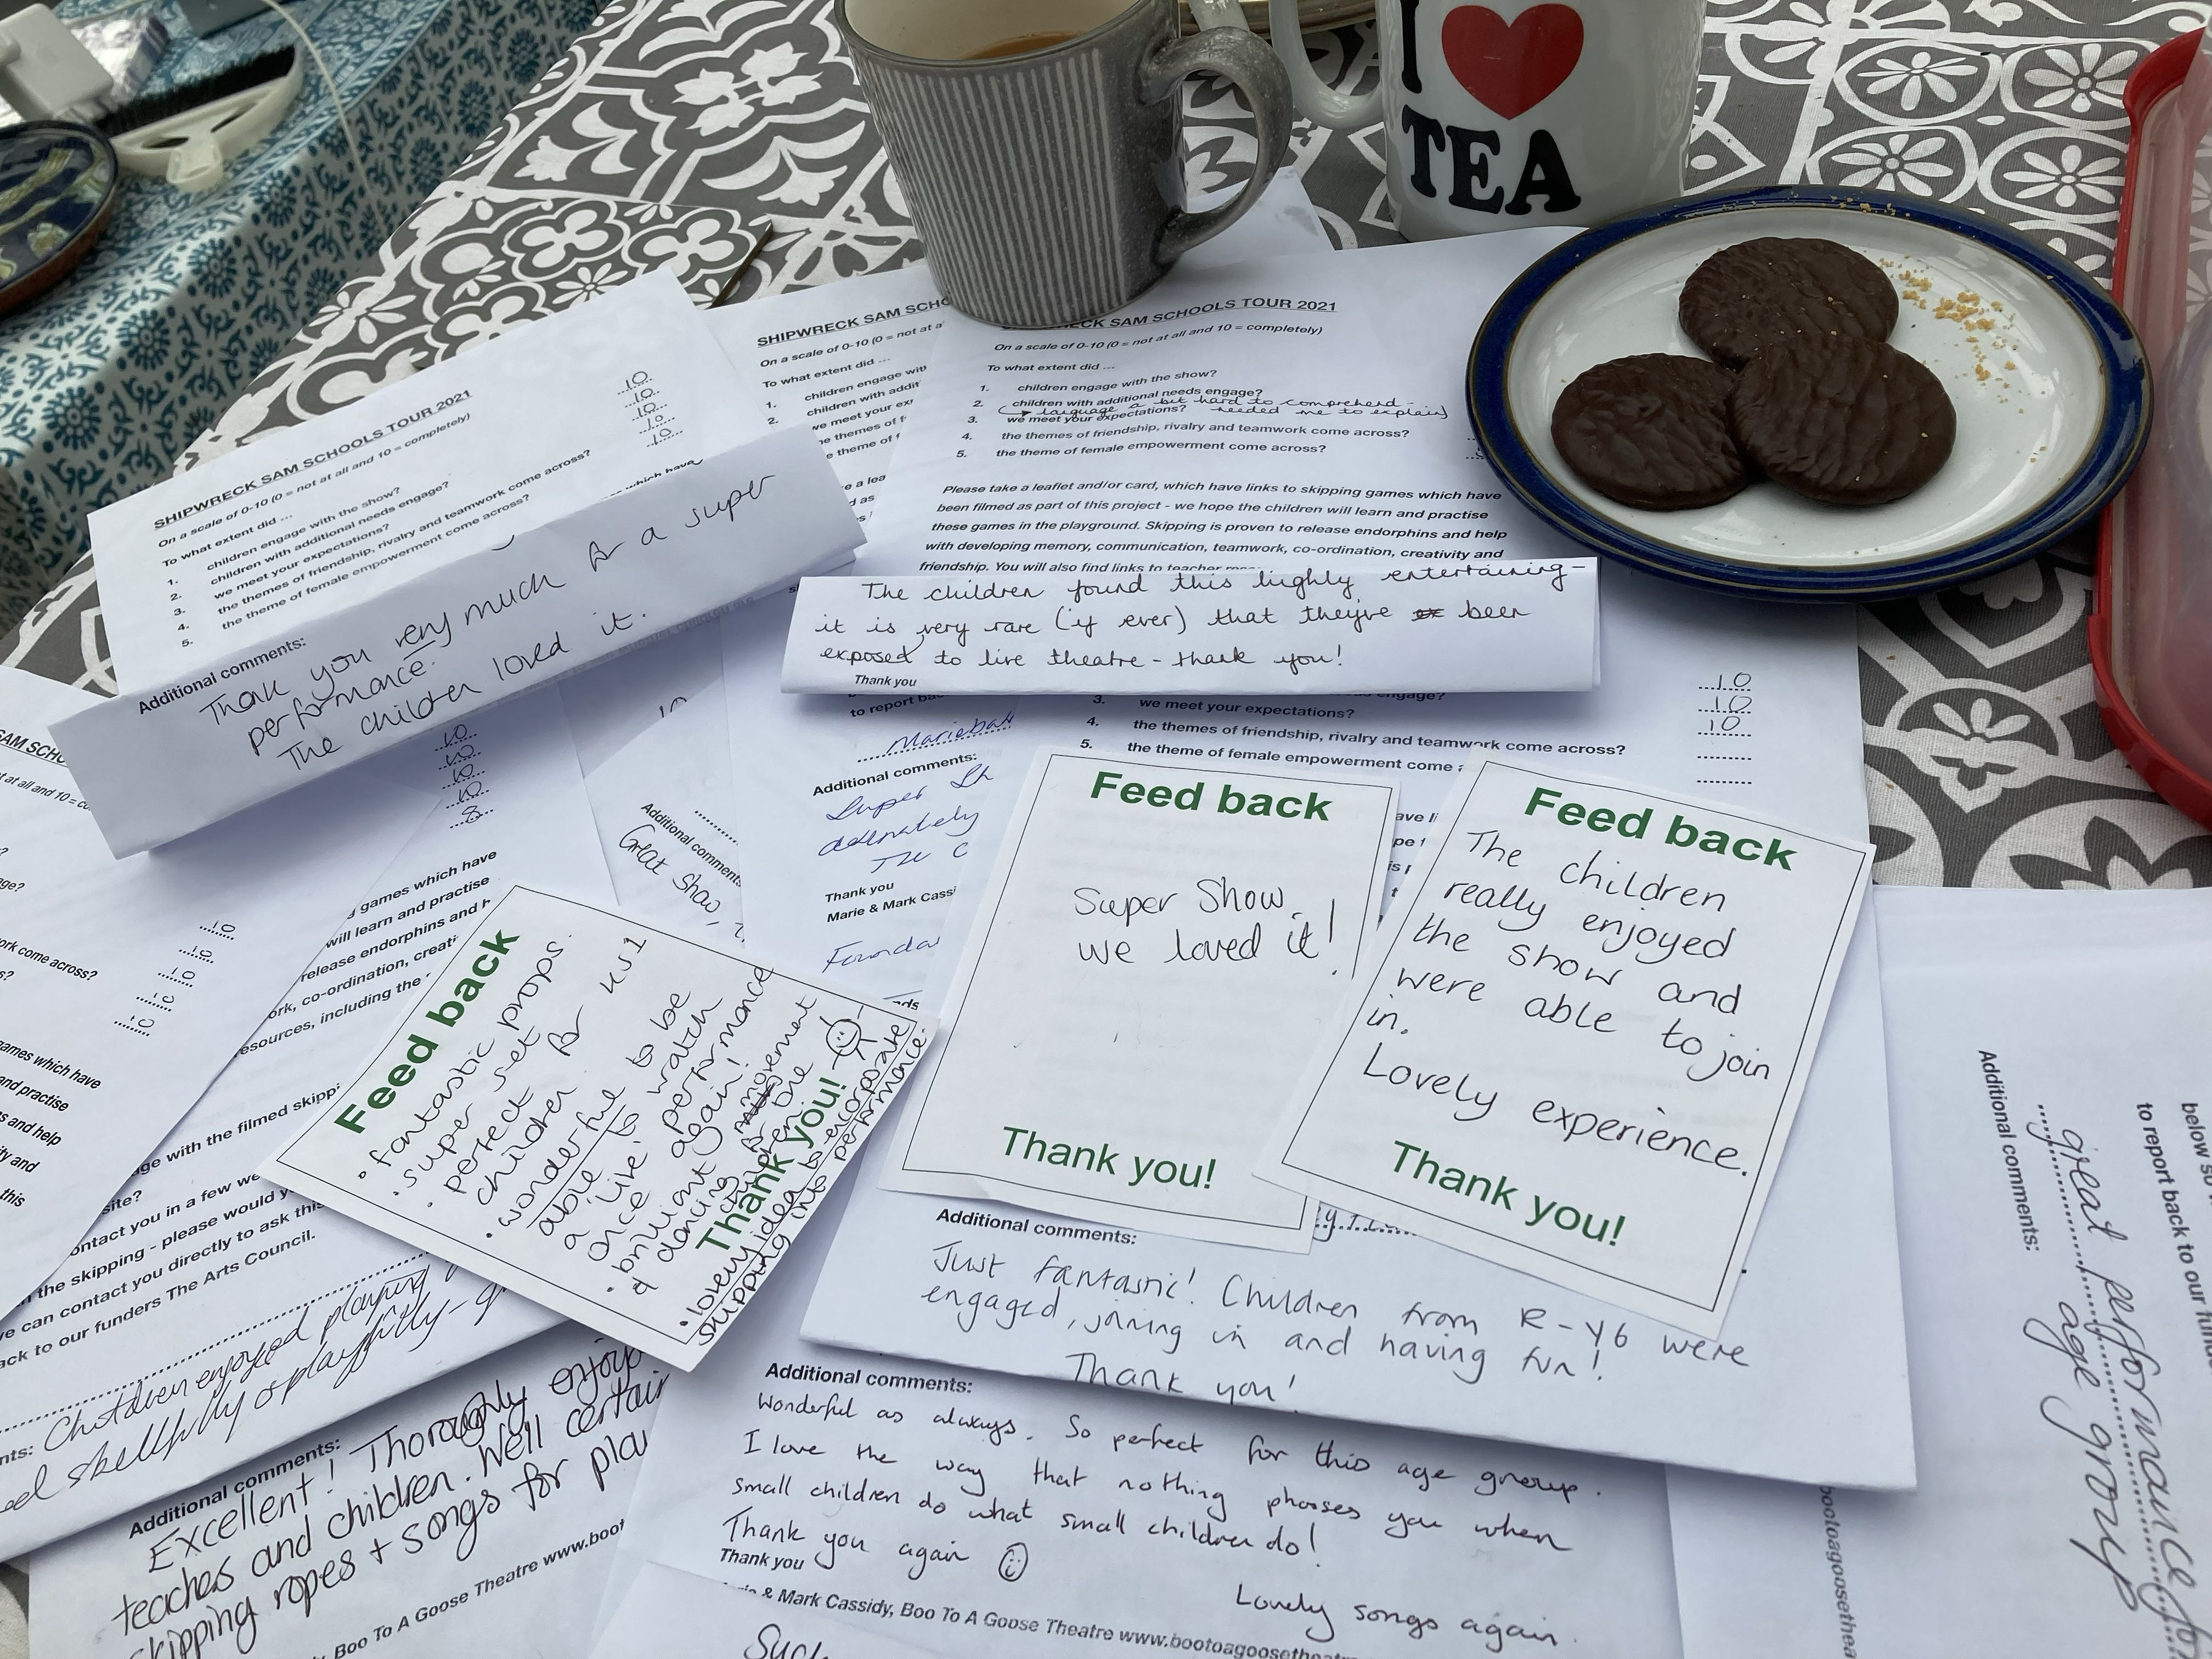 I
TEA
SHIPWRECK SAM SCHOOLS TOUR 2021
On a scale of 0-10 (0 = not at all and 10 = completely)
To what extent did ...
1. children engage with the show? 10
2. children with additional needs engage? 10
3. we meet your expectations? 10
4. the themes of friendship, rivalry and teamwork come across? 10
5. the theme of female empowerment come across? 10
which have
Additional comments:
Thank you very much for a super
performance.
The children loved it.
SHIPWRECK SAM SCHO
On a scale of 0-10 (0 = not at a
To what extent did ...
1. children engage with
2. children with addit
we meet your ex
themes of f
theme of f
SHIPWRECK SAM SCHOOLS TOUR 2021
On a scale of 0-10 (0 = not at all and 10 = completely)
To what extent did ...
1. children engage with the show?
2. children with additional needs engage?
language a bit hard to comprehend - needed me to explain
3. we meet your expectations?
4. the themes of friendship, rivalry and teamwork come across?
5. the theme of female empowerment come across?
Please take a leaflet and/or card, which have links to skipping games which have
been filmed as part of this project - we hope the children will learn and practise
these games in the playground. Skipping is proven to release endorphins and help
with developing memory, communication, teamwork, co-ordination, creativity and
friendship. You will also find links to
The children found this highly entertaining -
it is very rare (if ever) that they've been
exposed to live theatre - thank you!
Thank you
engage?
3. we meet your expectations? 10
4. the themes of friendship, rivalry and teamwork come across? 10
5. the theme of female empowerment come 10
to report
Additional comments:
Super
The
Thank you
Marie & Mark Cassi
Additional comments
Great show,
10
10
10
10
8
games which have
will learn and practise
release endorphins and
co-ordination, creati
resources, including the
with the filmed skippi
site?
contact you in a few we
the skipping - please would y
we can contact you directly to ask this
back to our funders The Arts Council.
SAM SCH
at all and 10 =
come across?
10
10
10
10
10
games which have
and practise
and help
ity and
this
Feed back
• fantastic props.
• super set
• perfect for KS1
children
• wonderful to be
able to watch
a 'live' performance
once again!
• brilliant movement
& dancing
Thank you!
• lovely idea to encorporate
skipping into performance.
Feed back
Super Show,
we loved it!
Thank you!
Feed back
The children
really enjoyed
the show and
were able to join
in.
Lovely experience.
Thank you!
Additional comments:
Just fantastic! Children from R-Y6 were
engaged, joining in and having fun!
Thank you!
Children enjoyed playing
skillfully or playfully -
Additional comments:
Excellent! Thoroughly enjoy
teachers and children. We'll certain
skipping ropes + songs for play
Boo To A Goose Theatre www.boot
Additional comments:
Wonderful as always. So perfect for this age group.
I love the way that nothing phases you when
small children do what small children do!
Thank you again
Thank you
Lovely songs again.
& Mark Cassidy, Boo To A Goose Theatre www.bootoagoosethe
Such
below so
to report back to our fund
Additional comments:
great performance for
age group
bootoagoosethea